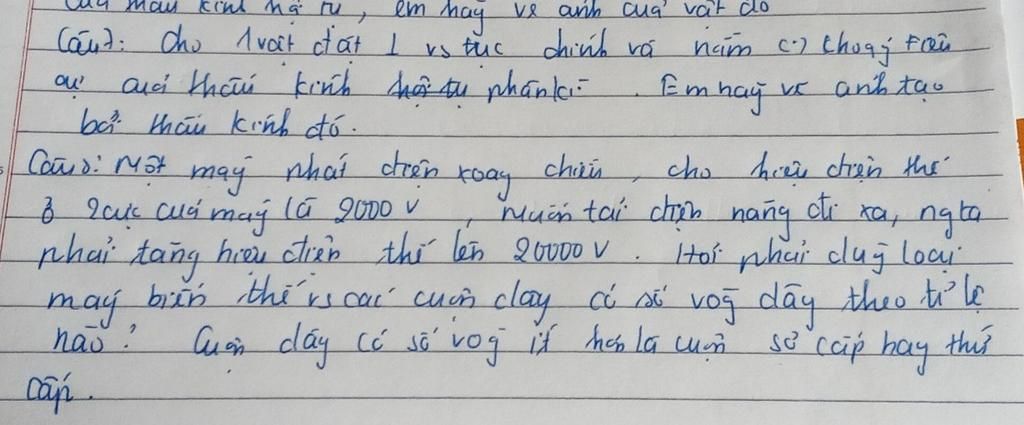 máy kính hội tụ, em hãy vẽ ảnh của vật đó
Câu7: Cho 1vật đặt ⊥ vs tục chính và nằm (.) khoảg tiêu
cự của thấu kính hội tụ phân kì. Em hãy vẽ ảnh tạo
bởi thấu kính đó.
Câu8: Một máy phát điện xoay chiều, cho hiệu điện thế
ở 2cực của máy là 2000 V, Muốn tải điện năng đi xa, ngta
phải tăng hiệu điện thế lên 20000 V. Hỏi phải dùg loại
máy biến thế vs các cuộn dây có số vòg dây theo tỉ lệ
nào? Cuộn dây có số vòg ít hơn là cuộn sơ cấp hay thứ
cấp.